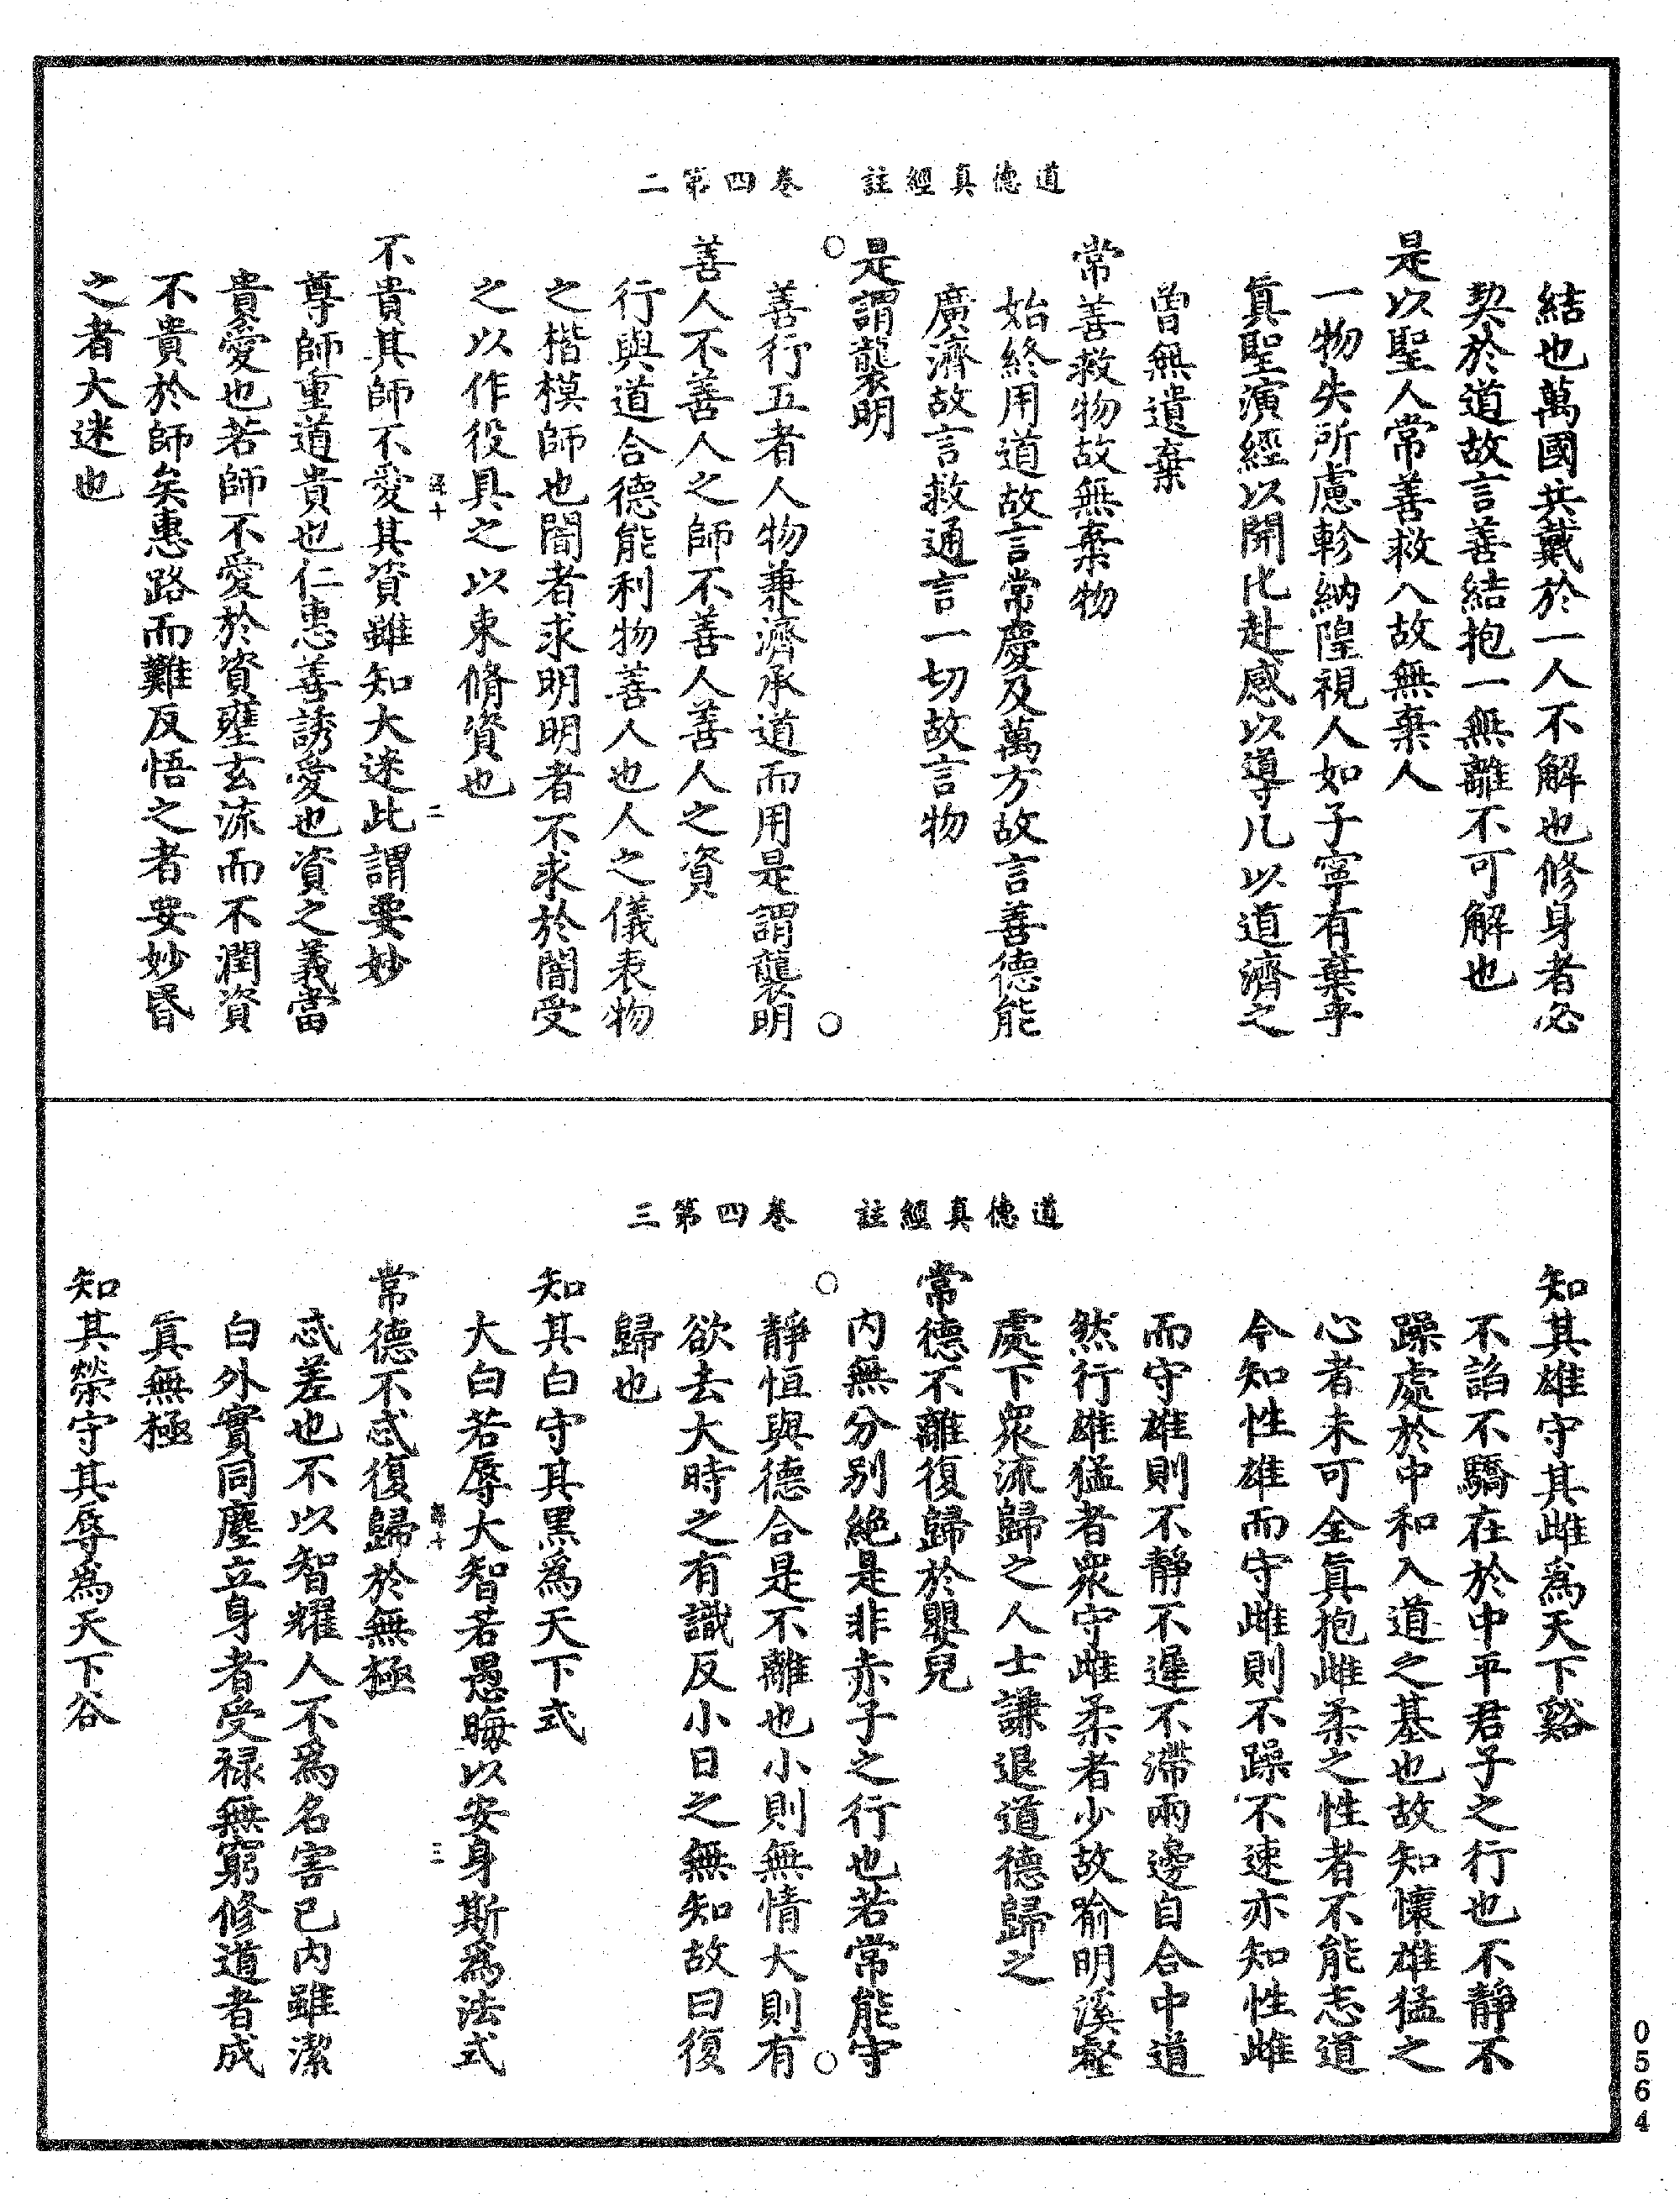 道德真經註　卷四第二
結也萬國共戴於一人不解也修身者必
契於道故言善結抱一無離不可解也
是以聖人常善救人故無棄人
一物失所慮軫納隍視人如子寧有棄乎
眞聖演經以開化赴感以導凡以道濟之
曾無遺棄
常善救物故無棄物
始終用道故言常慶及萬方故言善德能
廣濟故言救通言一切故言物
是謂襲明
善行五者人物兼濟承道而用是謂襲明
善人不善人之師不善人善人之資
行與道合德能利物善人也人之儀表物
之楷模師也闇者求明明者不求於闇受
之以作役具之以束脩資也
十 二
不貴其師不愛其資雖知大迷此謂要妙
尊師重道貴也仁惠善誘愛也資之義當
貴愛也若師不愛於資壅玄流而不潤資
不貴於師矣惠路而難反悟之者要妙昬
之者大迷也
道德真經註　卷四第三
知其雄守其雌爲天下谿
不諂不驕在於中平君子之行也不靜不
躁處於中和入道之基也故知懷雄猛之
心者未可全眞抱雌柔之性者不能志道
今知性雄而守雌則不躁不速亦知性雌
而守雄則不靜不遲不滯兩邊自合中道
然行雄猛者衆守雌柔者少故喻明溪壑
處下衆流歸之人士謙退道德歸之
常德不離復歸於嬰兒
内無分别絶是非赤子之行也若常能守
靜恒與德合是不離也小則無情大則有
欲去大時之有識反小日之無知故曰復
歸也
知其白守其黑爲天下式
大白若辱大智若愚晦以安身斯爲法式
十 三
常德不忒復歸於無極
忒差也不以智耀人不爲名害已内雖潔
白外實同塵立身者受禄無窮修道者成
眞無極
知其榮守其辱爲天下谷
0564